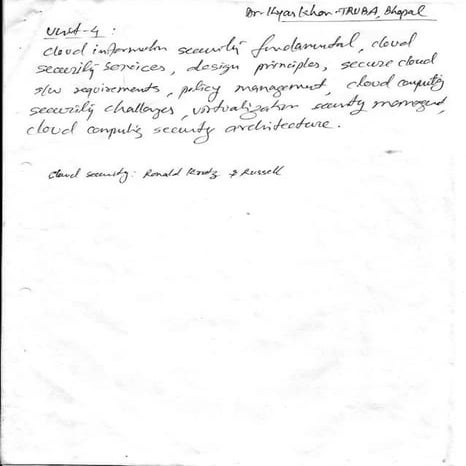 Dr. Ilyas Khan - TRUBA, Bhopal
Unit-4 :
cloud information security fundamental, cloud
security services, design principles, secure cloud
s/w requirements, policy management, cloud computing
security challenges, virtualization security management,
cloud computing security architecture.
cloud security: Ronald Krutz & Russell